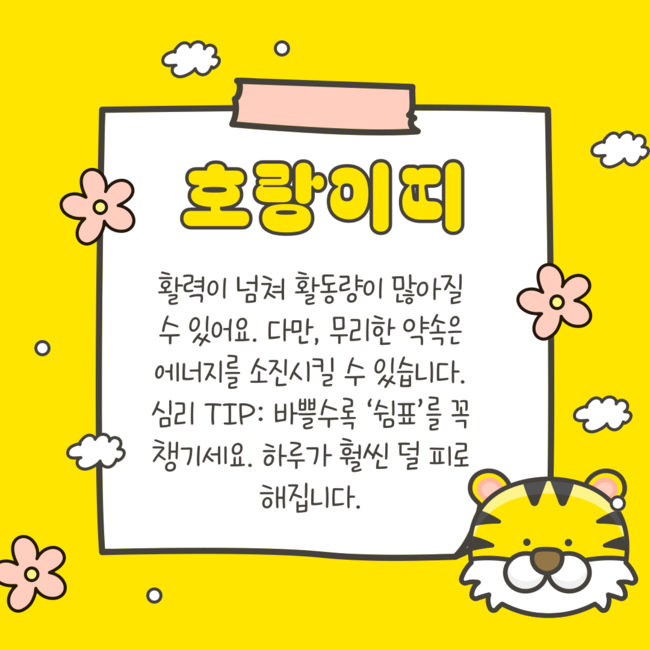 호랑이띠
활력이 넘쳐 활동량이 많아질
수 있어요. 다만, 무리한 약속은
에너지를 소진시킬 수 있습니다.
심리 TIP: 바쁠수록 ‘쉼표’를 꼭
챙기세요. 하루가 훨씬 덜 피로
해집니다.